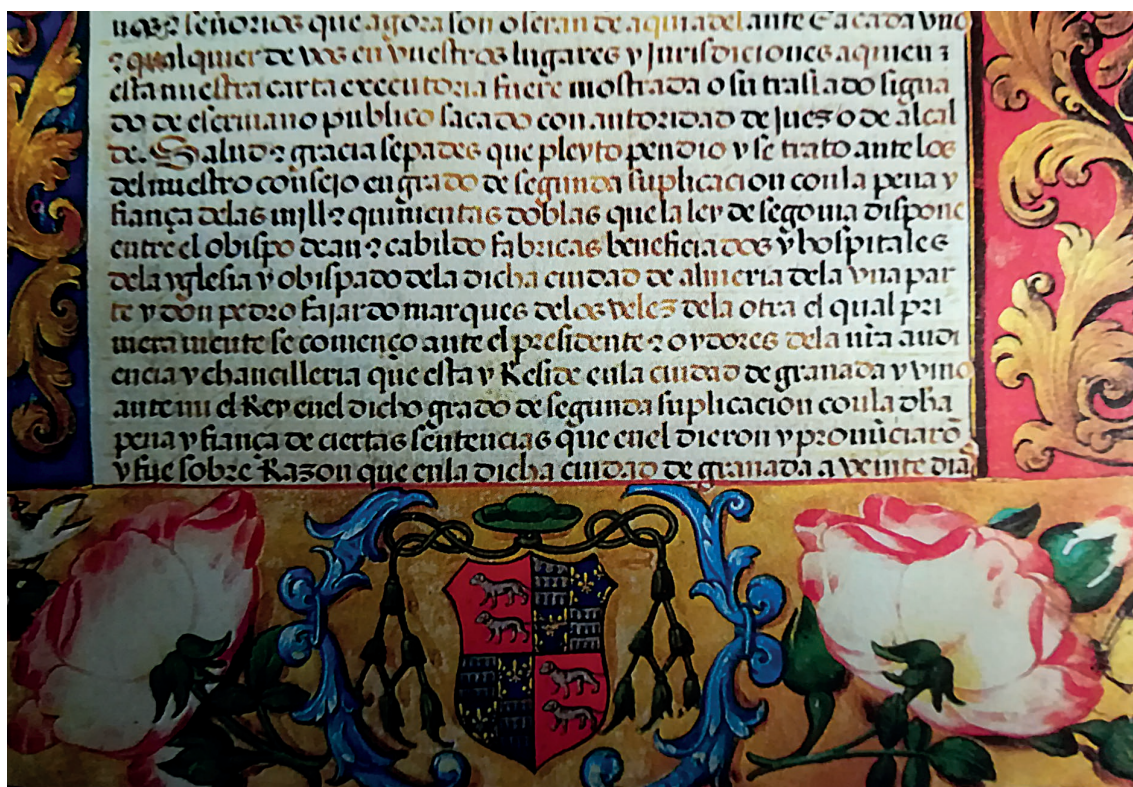 nos ⁊ señorios que agora son o seran de aqui adelante E a cada vno
⁊ qualquier de vos en vuestros lugares y Jurisdiciones a quien
esta nuestra carta executoria fuere mostrada o su traslado signa
do de escriuano publico sacado con autoridad de Juez o de alcal
de. Salud ⁊ gracia sepades que pleyto pendio y se trato ante los
del nuestro consejo en grado de segunda suplicacion con la pena y
fiança delas mill ⁊ quinientas doblas que la ley de segouia dispone
entre el obispo dean ⁊ cabildo fabricas beneficiados y hospitales
dela yglesia y obispado dela dicha ciudad de almeria dela vna par
te y don pedro fajardo marques delos velez dela otra el qual pri
mera mente se començo ante el presidente ⁊ oydores dela nr̃a audi
encia y chancilleria que esta y Reside enla ciudad de granada y vino
ante mi el Rey enel dicho grado de segunda suplicacion con la dh̃a
pena y fiança de ciertas sentencias que enel dieron y pronũciarõ
y fue sobre Razon que enla dicha ciudad de granada a veinte dias